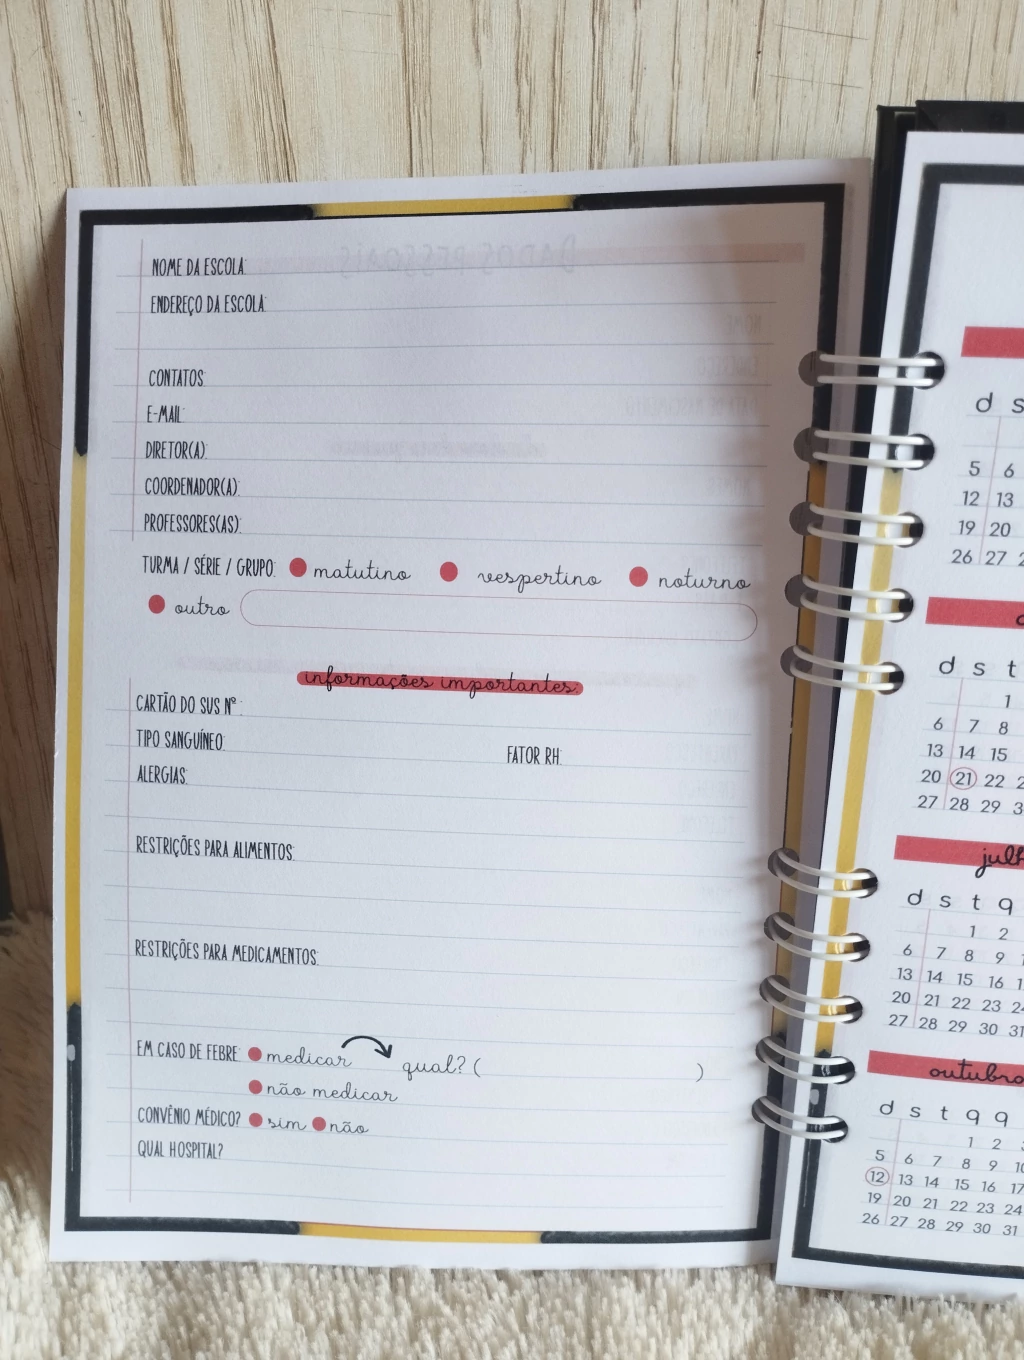 NOME DA ESCOLA:
ENDEREÇO DA ESCOLA:
CONTATOS:
E-MAIL:
DIRETOR(A):
COORDENADOR(A):
PROFESSORES(AS):
TURMA / SÉRIE / GRUPO: matutino vespertino noturno
outro
informações importantes:
CARTÃO DO SUS Nº :
TIPO SANGUÍNEO: FATOR RH:
ALERGIAS:
RESTRIÇÕES PARA ALIMENTOS:
RESTRIÇÕES PARA MEDICAMENTOS:
EM CASO DE FEBRE: medicar qual? ( )
não medicar
CONVÊNIO MÉDICO? sim não
QUAL HOSPITAL?
d s
5 6
12 13
19 20
26 27
d s t
1
6 7 8
13 14 15
20 21 22
27 28 29
d s t q
1 2
6 7 8 9
13 14 15 16
20 21 22 23
27 28 29 30 31
outubro
d s t q q
1 2
5 6 7 8 9 10
12 13 14 15 16 17
19 20 21 22 23 24
26 27 28 29 30 31